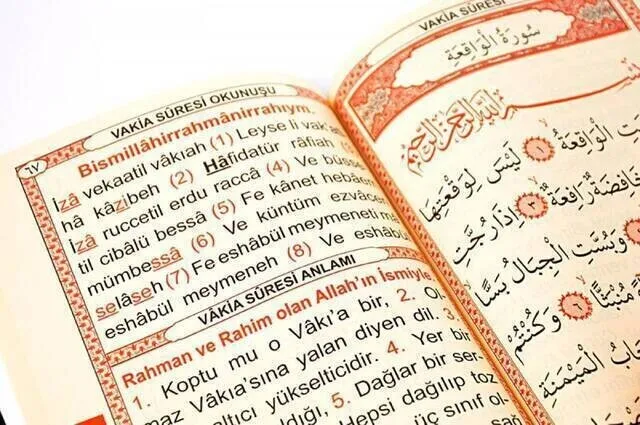 VAKİA SÛRESİ OKUNUŞU
٦٧
Bismillâhirrahmânirrahıym.
İzâ vekaatil vâkıah (1) Leyse li vak'at
hâ kâzibeh (2) Hâfidatür râfiah (3)
İzâ ruccetil erdu raccâ (4) Ve büsse
til cibâlü bessâ (5) Fe kânet hebâen
mümbessâ (6) Ve küntüm ezvâcen
selâseh (7) Fe eshâbül meymeneti mâ
eshâbül meymeneh (8) Ve eshâbül
VÂKİA SÛRESİ ANLAMI
Rahman ve Rahim olan Allah'ın İsmiyle
1. Koptu mu o Vâkı'a bir, 2. Ol-
maz Vâkıa'sına yalan diyen dil. 3.
altıcı yükselticidir. 4. Yer bir
ldığı, 5. Dağlar bir ser-
Hepsi dağılıp toz
üç sınıf ol-
sağ
VAKİA SÛRESİ
سُورَةُ الْوَاقِعَةِ
بِسْمِ اللّٰهِ الرَّحْمٰنِ الرَّحِيمِ
الْوَاقِعَةُ ١ لَيْسَ لِوَقْعَتِهَا
خَافِضَةٌ رَافِعَةٌ ٣ اِذَا رُجَّتِ
وَبُسَّتِ الْجِبَالُ بَسًّا
مُنْبَثًّا ٦ وَكُنْتُمْ
الْمَيْمَنَةِ